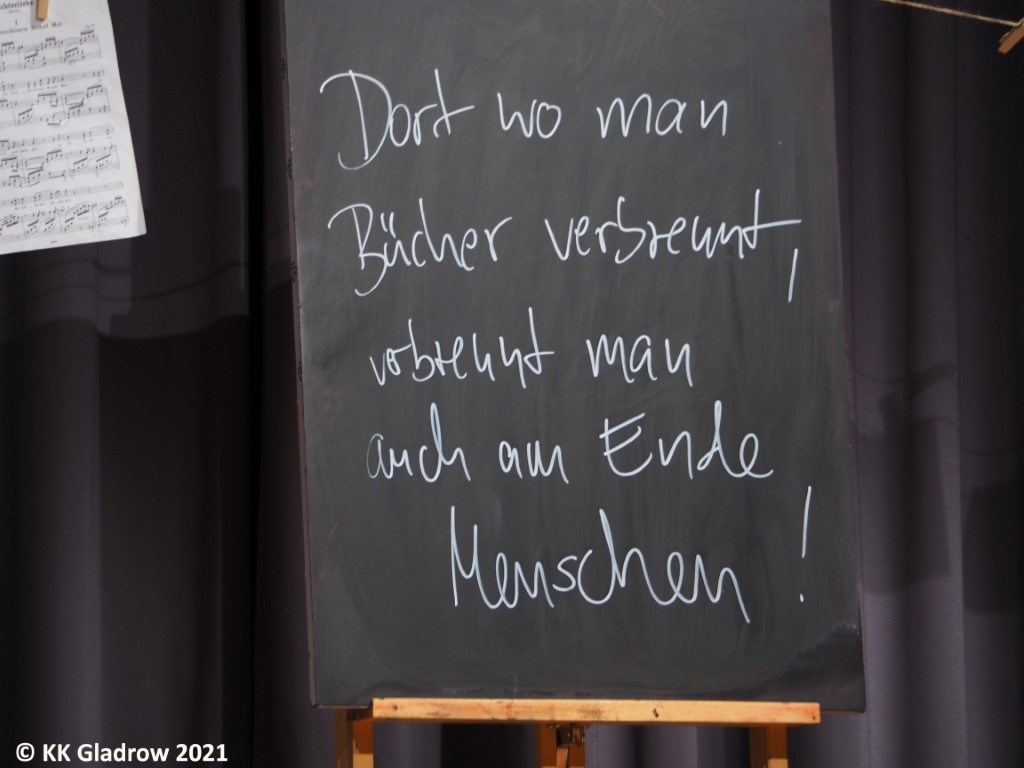 1.
Dort wo man
Bücher verbrennt,
verbrennt man
auch am Ende
Menschen!
© KK Gladrow 2021